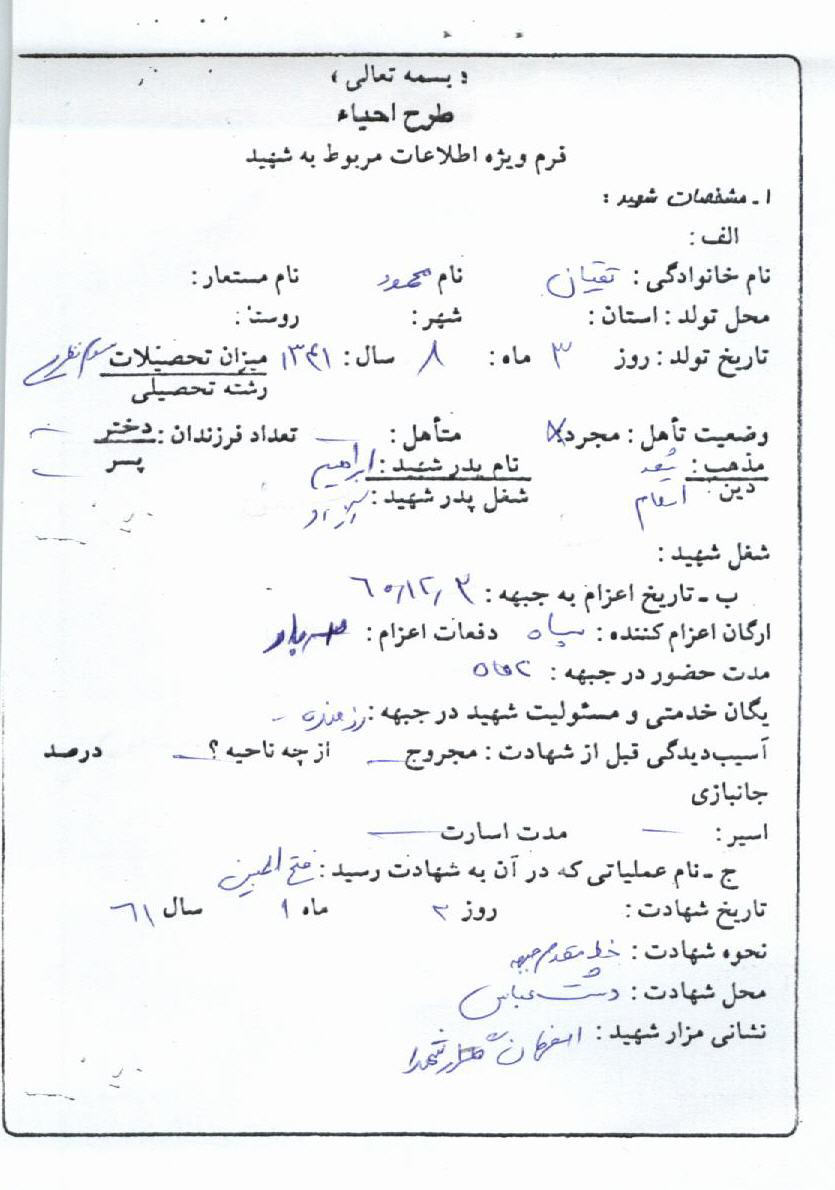 « بسمه تعالی »
طرح احیاء
فرم ویژه اطلاعات مربوط به شهید
۱ - مشخصات شهید :
الف :
نام خانوادگی : تقیان نام محمود نام مستعار :
محل تولد : استان : شهر : روستا :
تاریخ تولد : روز ۳ ماه : ۸ سال : ۱۳۴۱ میزان تحصیلات سوم نظری
رشته تحصیلی
وضعیت تأهل : مجرد X متأهل : — تعداد فرزندان : دختر —
پسر —
مذهب : شیعه نام پدر شهید : ابراهیم
دین : اسلام شغل پدر شهید :
شغل شهید :
ب - تاریخ اعزام به جبهه : ۶۰/۱۲/۳
ارگان اعزام کننده : سپاه دفعات اعزام :
مدت حضور در جبهه : ۲ ماه
یگان خدمتی و مسئولیت شهید در جبهه : رزمنده -
آسیب‌دیدگی قبل از شهادت : مجروح — از چه ناحیه ؟ — درصد
جانبازی
اسیر : — مدت اسارت —
ج - نام عملیاتی که در آن به شهادت رسید : فتح المبین
تاریخ شهادت : روز ۲ ماه ۱ سال ۶۱
نحوه شهادت : خط مقدم جبهه
محل شهادت : دشت عباس
نشانی مزار شهید : اصفهان گلزار شهدا